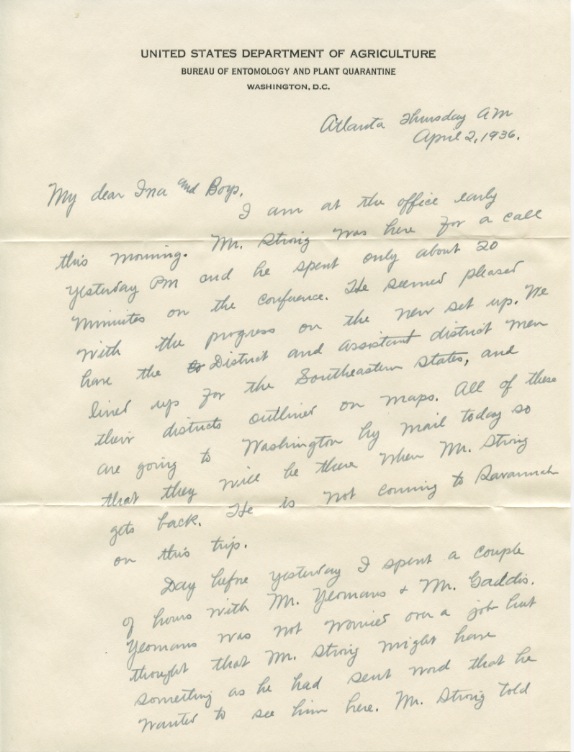 UNITED STATES DEPARTMENT OF AGRICULTURE
BUREAU OF ENTOMOLOGY AND PLANT QUARANTINE
WASHINGTON, D.C.
Atlanta Thursday AM
April 2, 1936.
My dear Ina and Boys,
I am at the office early
this morning. Mr. Strong was here for a call
yesterday PM and he spent only about 20
minutes on the conference. He seemed pleased
with the progress on the new set up. We
have the District and assistant district men
lined up for the Southeastern States, and
their districts outlined on maps. All of these
are going to Washington by mail today so
that they will be there when Mr. Strong
gets back. He is not coming to Savannah
on this trip.
Day before yesterday I spent a couple
of hours with Mr. Yeomans & Mr. Gaddis.
Yeomans was not worried over a job but
thought that Mr. Strong might have
something as he had sent word that he
wanted to see him here. Mr. Strong told